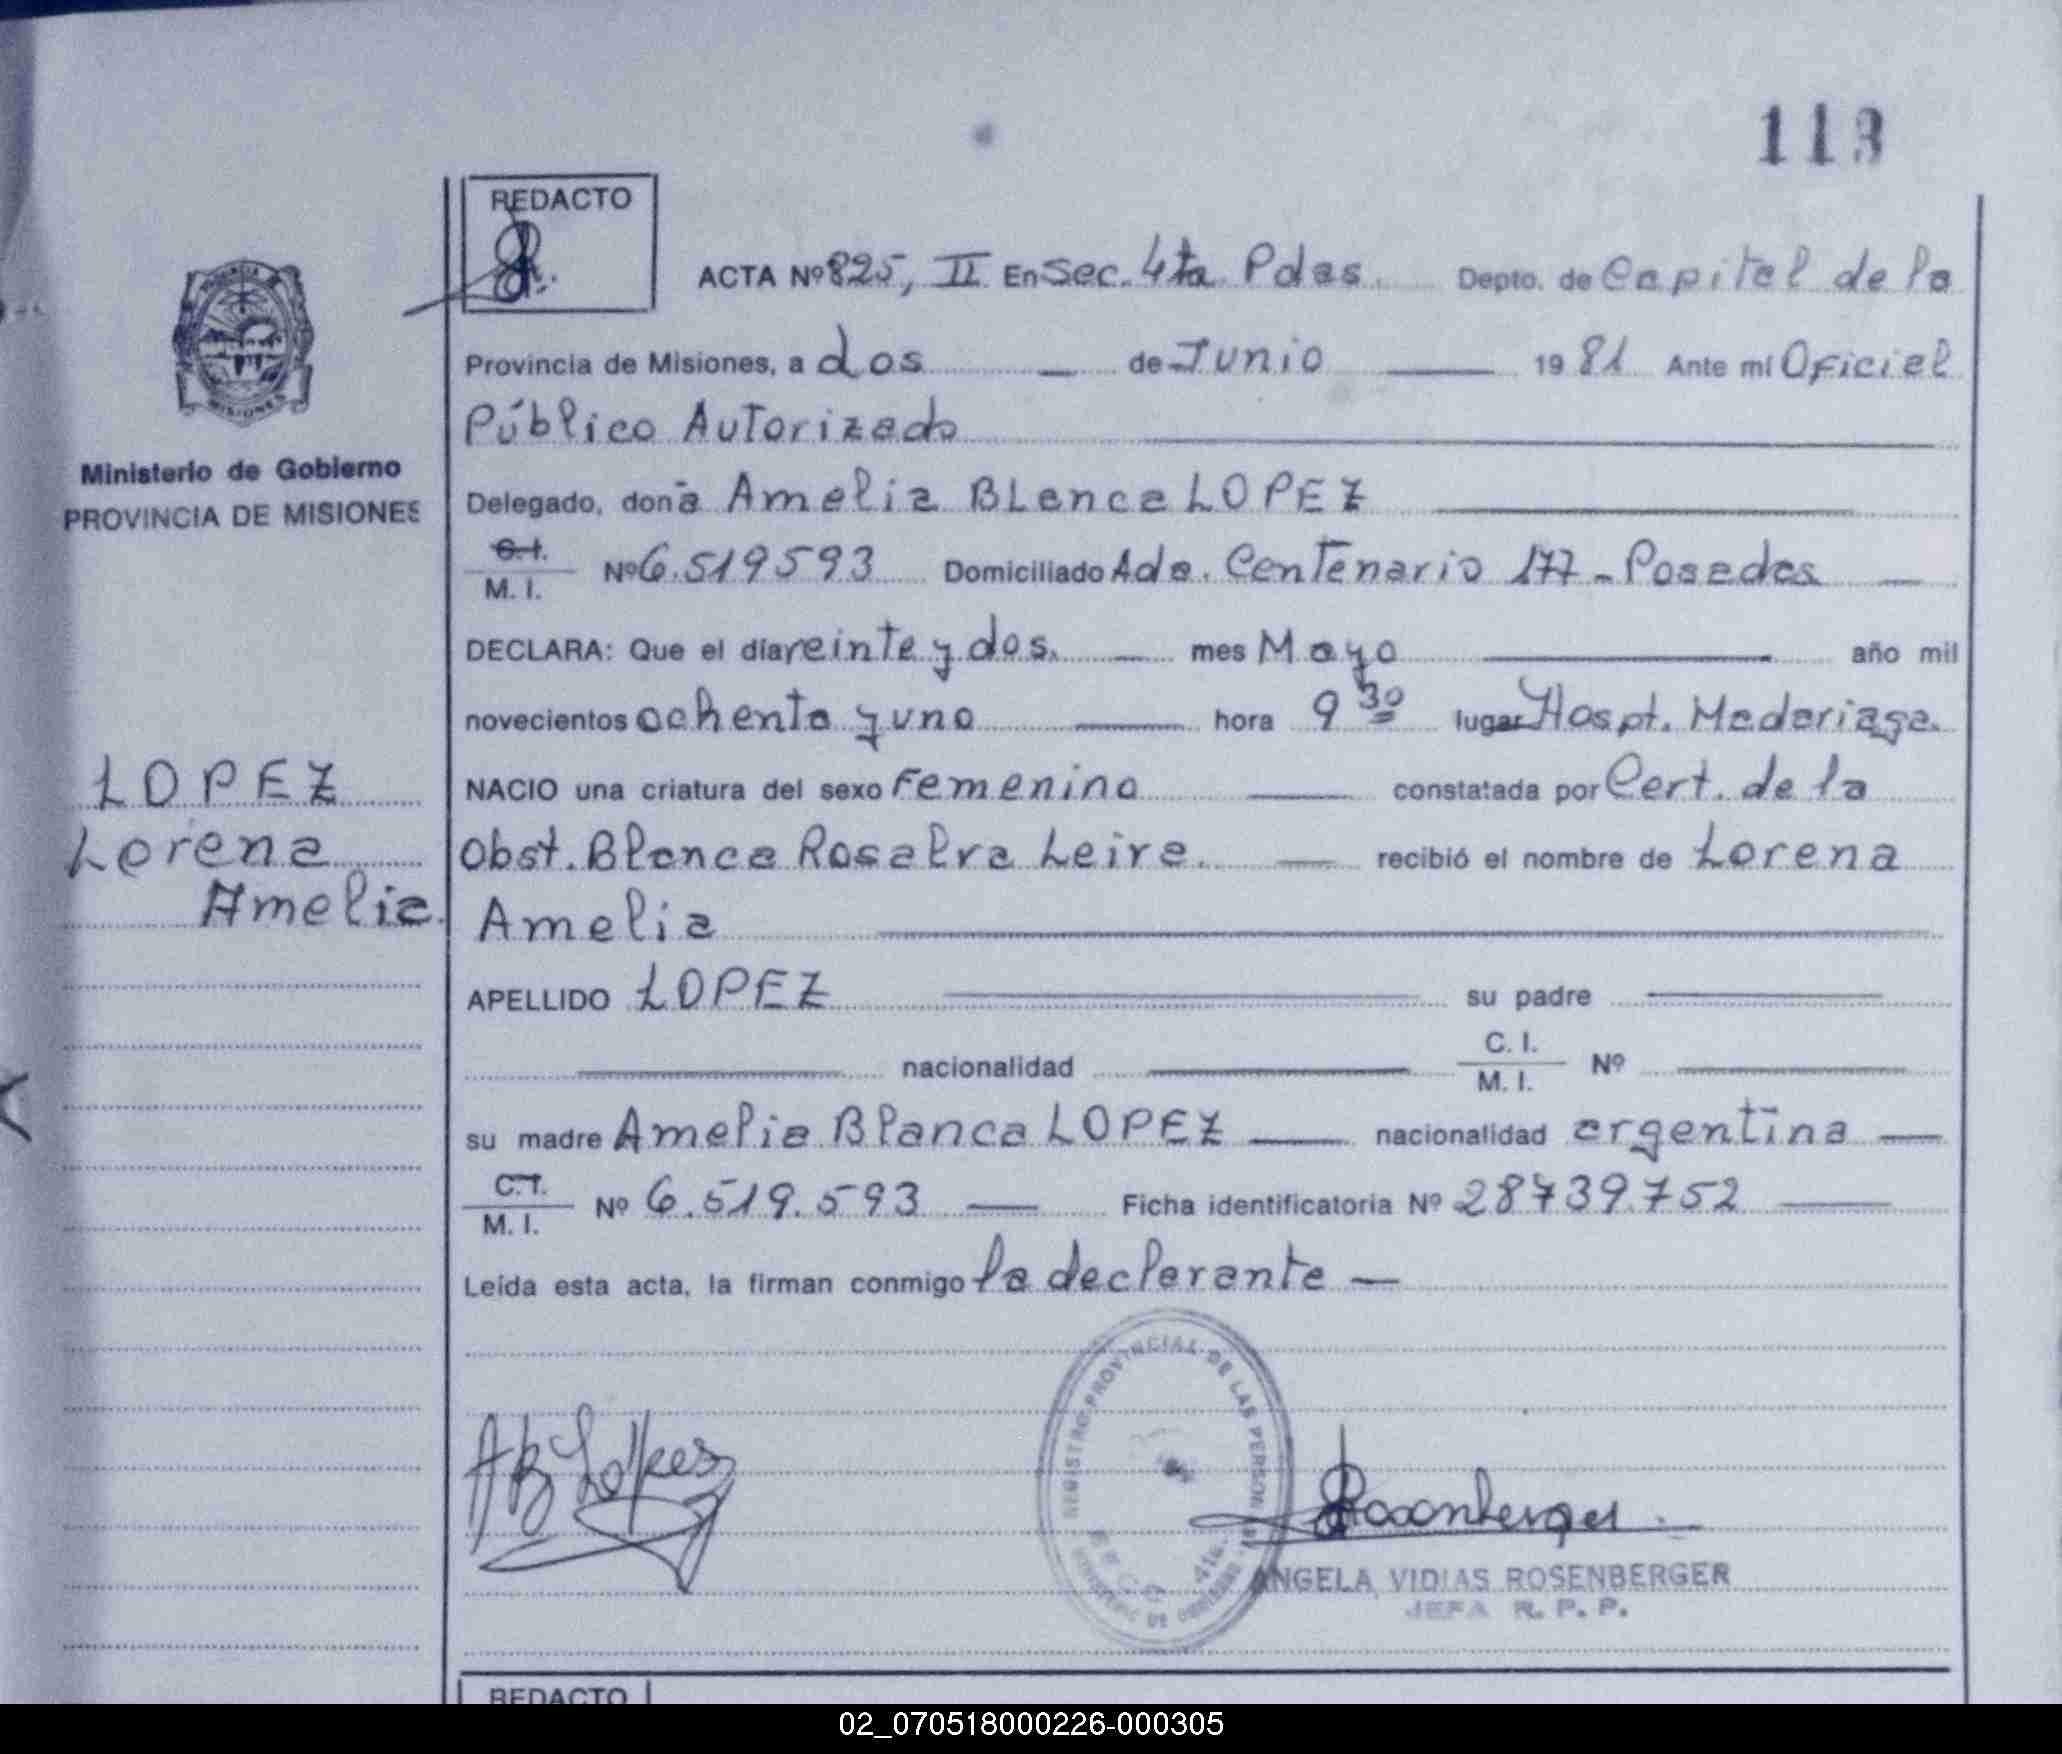 113
REDACTO
ACTA Nº 825, II En Sec. 4ta Pdas. Depto. de Capital de la
Provincia de Misiones, a dos de Junio 1981 Ante mí Oficial
Público Autorizado
Ministerio de Gobierno
PROVINCIA DE MISIONES
Delegado, doña Amelia Blanca LOPEZ
C.I. M. I. Nº 6.519593 Domiciliado Ada. Centenario 177 - Posadas
DECLARA: Que el día veinte y dos. mes Mayo año mil
novecientos ochenta y uno hora 9 30 lugar Hospt. Madariaga.
LOPEZ
Lorena
Amelia.
NACIO una criatura del sexo Femenino constatada por Cert. de la
Obst. Blanca Rosalva Leiva. recibió el nombre de Lorena
Amelia
APELLIDO LOPEZ su padre
nacionalidad C. I. M. I. Nº
su madre Amelia Blanca LOPEZ nacionalidad argentina
C.I. M. I. Nº 6.519.593 Ficha identificatoria Nº 28739.752
Leída esta acta, la firman conmigo la declarante
AB Lopez
REGISTRO PROVINCIAL DE LAS PERSONAS
Rosenberger
ANGELA VIDIAS ROSENBERGER
JEFA R. P. P.
REDACTO
02_070518000226-000305